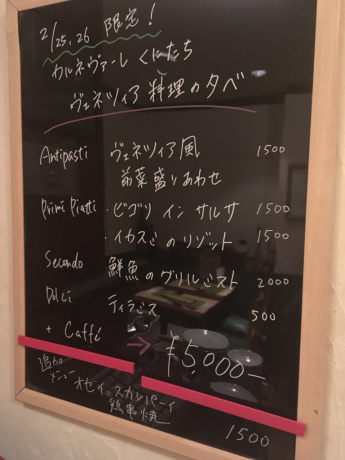 2/25,26 限定!
カルネヴァーレ くにたち
ヴェネツィア 料理の夕べ
Antipasti ヴェネツィア風 1500
前菜盛りあわせ
Primi Piatti ・ビゴリ イン サルサ 1500
・イカスミのリゾット 1500
Secondo 鮮魚のグリルミスト 2000
Dolci ティラミス 500
+ Caffé → ¥5,000-
追加
メニュー オセイ・スカンパーイ
鶏串焼 1500